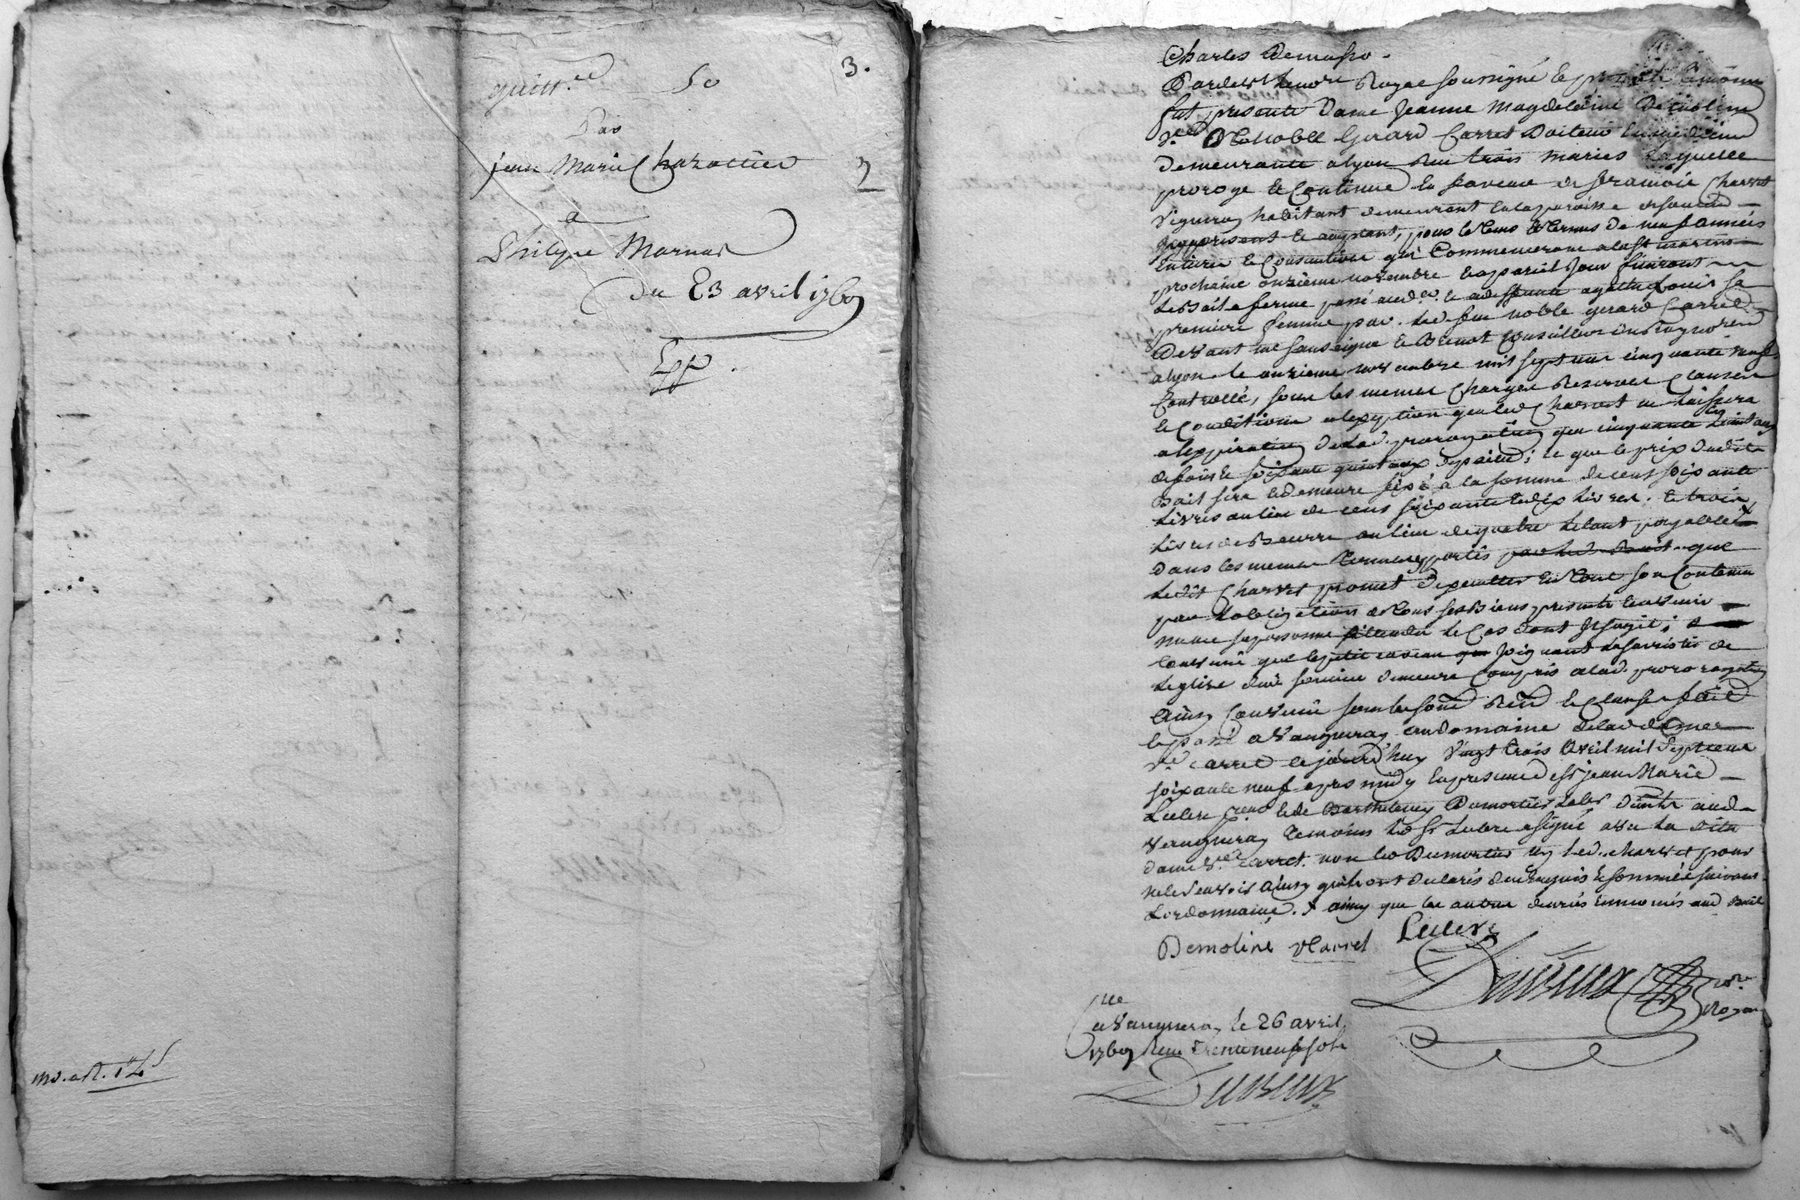 3.
quitt.ce 50
Par
Jean Marie Charattier
a
Philipe Marnas
du 23 avril 1769
Exp
md. art. 14s
Charles Demasso.
Pardevt le nore Royal soussigné & presents temoins
fut presente Dame Jeanne Magdelaine Demoline
ve. De Noble Gerard Carret Docteur en medecine
demeurante a lyon rue trois maries laquelle
proroge & Continue en faveur de françois Charvet
vigneron habitant demeurant en la paroisse de
icy present & acceptant, pour le tems & termes de neuf années
Entieres & Consecutives qui Commenceront a la st martin
prochaine onzieme novembre & a pareil jour finiront
Le Bail a ferme passé aud. & a agathe Louis sa
premiere femme par led. feu noble gerard Carret
Devant me & Benot Conseillers du Roy nores
a lyon le onzieme novembre mil sept cent cinquante neuf
Controllé, sous les memes Charges Reserves Clauses
& Conditions a l'exeption que led Charvet ne laissera
a l'expiration de lad. prorogation que cinquante quintaux
de foin & soixante quintaux de paille; & que le prix dudit
Bail sera & demeure fixé a la somme de cent soixante
Livres au lieu de cent soixante & dix Livres. & trois
Livres de Beurre au lieu de quatre le tout payable x
dans les memes termes portés par led. Bail que
Ledit Charvet promet d'executer en tout son Contenu
par l'obligation de tous ses Biens presents & avenir
meme sa personne attendu le Cas dont s'agit;
Convenu que le petit caveau joignant la sacristie de
L'eglise dud. demeure Compris a lad. prorogation
Ainsy Convenu sous les soum. Renon. & Clauses fait
& passé a Vaugneray au domaine de lad dame
ve. Carret cejourd'huy vingt trois Avril mil sept cent
soixante neuf apres midy en presence de sr Jean Marie
Leclerc & de Barthelemy Dumortier Labr d'ente aud.
Vaugneray temoins led sr Leclerc a signé avec la dite
dame ve. Carret. non led Dumortier ny led. charvet pour
ne le sçavoir Ainsy qu'ils ont declarés de ce Enquis & sommés suivant
L'ordonnance. x ainsy que les autres denrés enoncés aud Bail
Demoline v Carret Leclerc
Duvrieux nore Royal
Clle
a Vaugneray le 26 avril
1769 Reçu trente neuf sols
Duvrieux